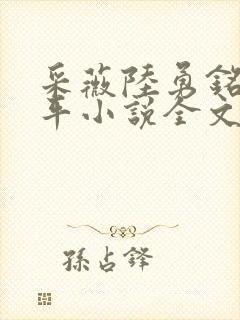 采薇陸勇銘
年小説全文
孫占鋒